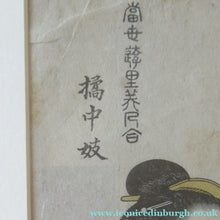 當世遊里美人合
橘中妓
www.iconicedinburgh.co.uk